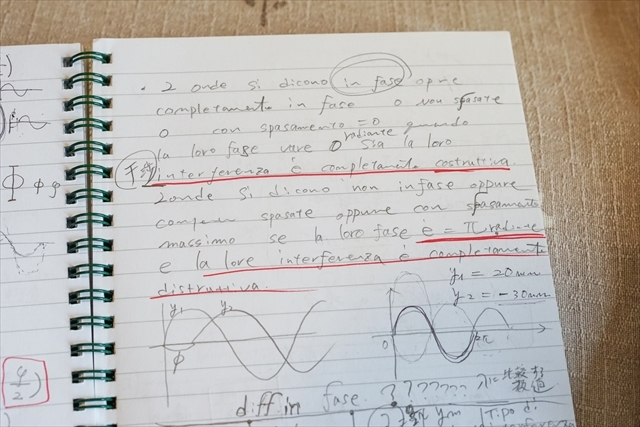 · 2 onde si dicono in fase opure
completamente in fase o non sfasate
o con spasamento =0 quando
radiante
la loro fase vere 0 sia la loro
interferenza è completamente costruttiva
2onde si dicono non in fase oppure
spasate oppure con sfasamento
massimo se la loro fase è = π radiante
e la lore interferenza è completamente
distruttiva.
y1 = 20mm
y2 = -30mm
y1 y2
φ
0
Φ φ φ
φ/2)
diff in fase ???????
ym Tipo di